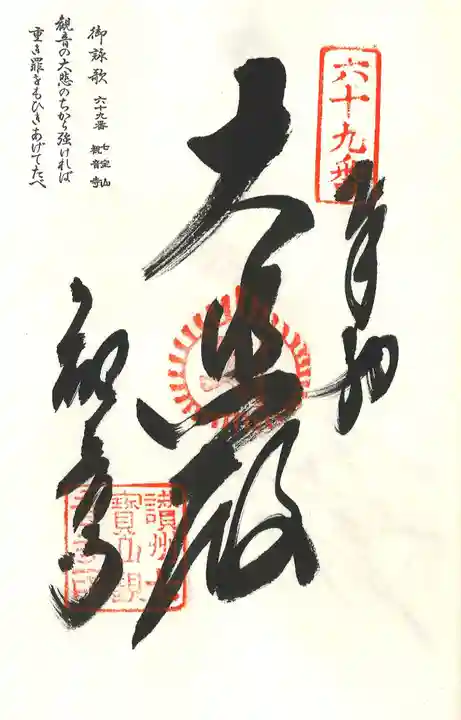 六十九番
奉納
大悲殿
観音寺
御詠歌 六十九番 七宝山 観音寺
観音の大悲のちから強ければ
重き罪をもひきあげてたべ